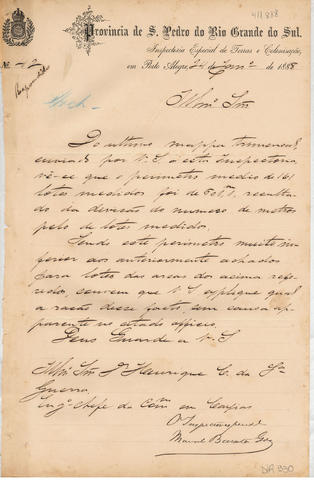 411888
Provincia de S. Pedro do Rio Grande do Sul.
Inspectoria Especial de Terras e Colonisação,
Nº 2
em Porto Alegre, 24 de Janrº de 1888
Respondido
Illmº Snr
Do ultimo mappa trimensal
enviado por V. S. á esta Inspectoria
vê-se que o perimetro medio de 161
lotes medidos foi de resulta-
do da divisão do numero de metros
pelo de lotes medidos.
Sendo este perimetro muito in-
ferior aos anteriormente achados
para lotes das areas do acima refe-
rido, convem que V S explique qual
a rasão desse facto, sem causa ap-
parente no citado officio.
Deus Guarde a V. S
Illmº Snr Dr Henrique C. da Sª
Guerra
Engº Chefe da Comm em Caxias
O Inspector especial
Manoel Barata Goes
DIR 930